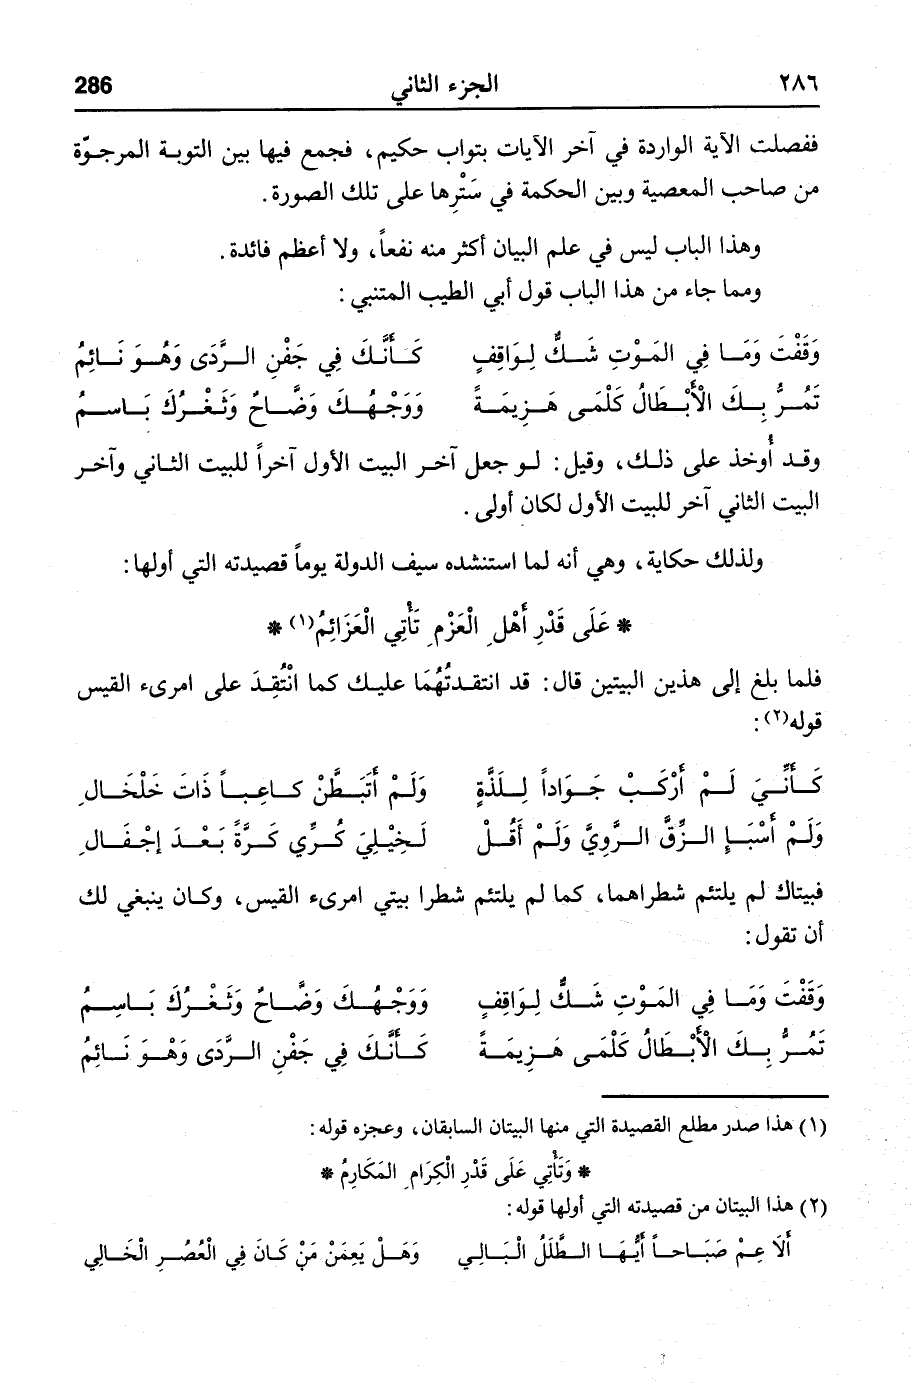 ٢٨٦ الجزء الثاني 286
ففصلت الآية الواردة في آخر الآيات بتواب حكيم، فجمع فيها بين التوبـة المرجـوّة
من صاحب المعصية وبين الحكمة في سَتْرِها على تلك الصورة.
وهذا الباب ليس في علم البيان أكثر منه نفعاً، ولا أعظم فائدة.
ومما جاء من هذا الباب قول أبي الطيب المتنبي:
وَقَفْتَ وَمَـا فِي المَوْتِ شَـكٌّ لِـوَاقِفٍ كَـأَنَّـكَ فِي جَفْنِ الـرَّدَى وَهُـوَ نَـائِمُ
تَمُـرُّ بِـكَ الْأَبْـطَالُ كَلْمَى هَـزِيمَـةً وَوَجْهُـكَ وَضَّـاحٌ وَثَغْـرُكَ بَـاسِـمُ
وقـد أُوخذ على ذلـك، وقيل: لـو جعل آخـر البيت الأول آخراً للبيت الثـاني وآخـر
البيت الثاني آخر للبيت الأول لكان أولى.
ولذلك حكاية، وهي أنه لما استنشده سيف الدولة يوماً قصيدته التي أولها:
* عَلَى قَدْرِ أَهْلِ الْعَزْمِ تَأْتِي الْعَزَائِمُ(١) *
فلما بلغ إلى هذين البيتين قال: قد انتقـدتُهُمَا عليـك كما انْتُقِـدَ على امرىء القيس
قوله(٢):
كَـأَنِّـيَ لَـمْ أَرْكَـبْ جَـوَاداً لِـلَذَّةٍ وَلَـمْ أَتَبَـطَّنْ كـاعِبـاً ذَاتَ خَلْخَـالِ
وَلَـمْ أَسْبَـإِ الـزِّقَّ الـرَّوِيَّ وَلَمْ أَقُـلْ لَـخِيْلِيَ كُـرِّي كَـرَّةً بَـعْـدَ إِجْفَـالِ
فبيتاك لم يلتئم شطراهما، كما لم يلتئم شطرا بيتي امرىء القيس، وكـان ينبغي لك
أن تقول:
وَقَفْتَ وَمَـا فِي المَوْتِ شَـكٌّ لِـوَاقِفٍ وَوَجْـهُـكَ وَضَّـاحٌ وَثَـغْـرُكَ بَـاسِـمُ
تَمُـرُّ بِـكَ الْأَبْـطَالُ كَلْمَى هَـزِيمَـةً كَـأَنَّكَ فِي جَفْنِ الـرَّدَى وَهْـوَ نَـائِمُ
(١) هذا صدر مطلع القصيدة التي منها البيتان السابقان، وعجزه قوله:
* وَتَأْتِي عَلَى قَدْرِ الْكِرَامِ المَكَارِمُ *
(٢) هذا البيتان من قصيدته التي أولها قوله:
أَلَا عِـمْ صَبَـاحـاً أَيُّهَـا الـطَّلَلُ الْبَـالِـي وَهَـلْ يَعِمَنْ مَنْ كَـانَ فِي الْعُصُـرِ الْخَـالِي